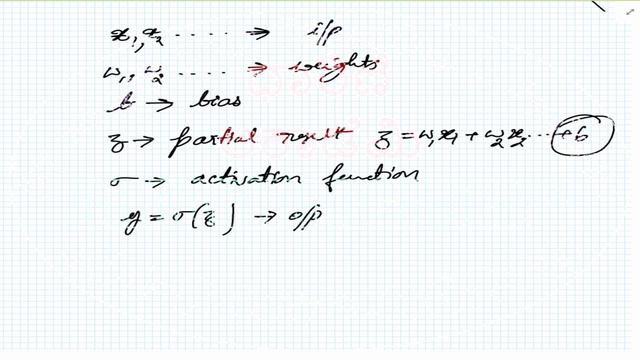 x₁, x₂ ..... → i/p
w₁, w₂ ..... → weights
b → bias
z → partial result z = w₁x₁ + w₂x₂ ... + b
σ → activation function
y = σ(z) → o/p